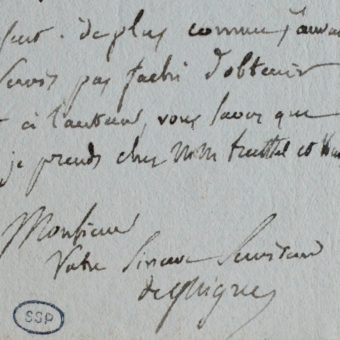 de plus comme j'aurai
serois pas faché d'obtenir
à l'auteur, vous savez que
je prends chez MM treuttel et Wur
Monsieur
Votre sincere Serviteur
deguignes
SSP